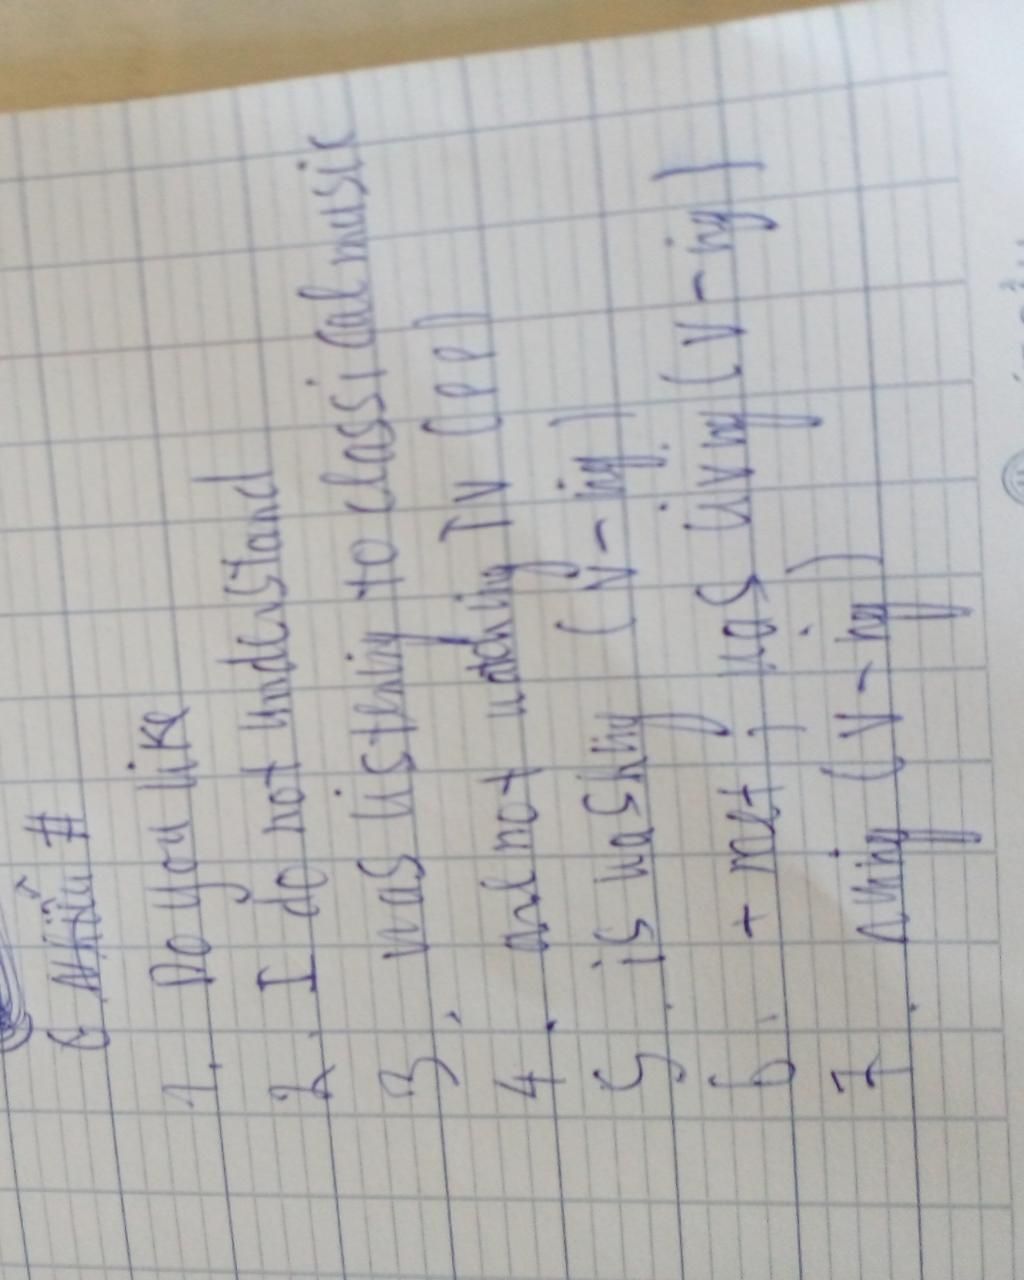 1. Do you like
2. I do not understand
3. was listning to classical music
4. are not watching TV (PP)
5. is washing (V-ing)
6. + rast, was living (V-ing)
7. (V-ing)